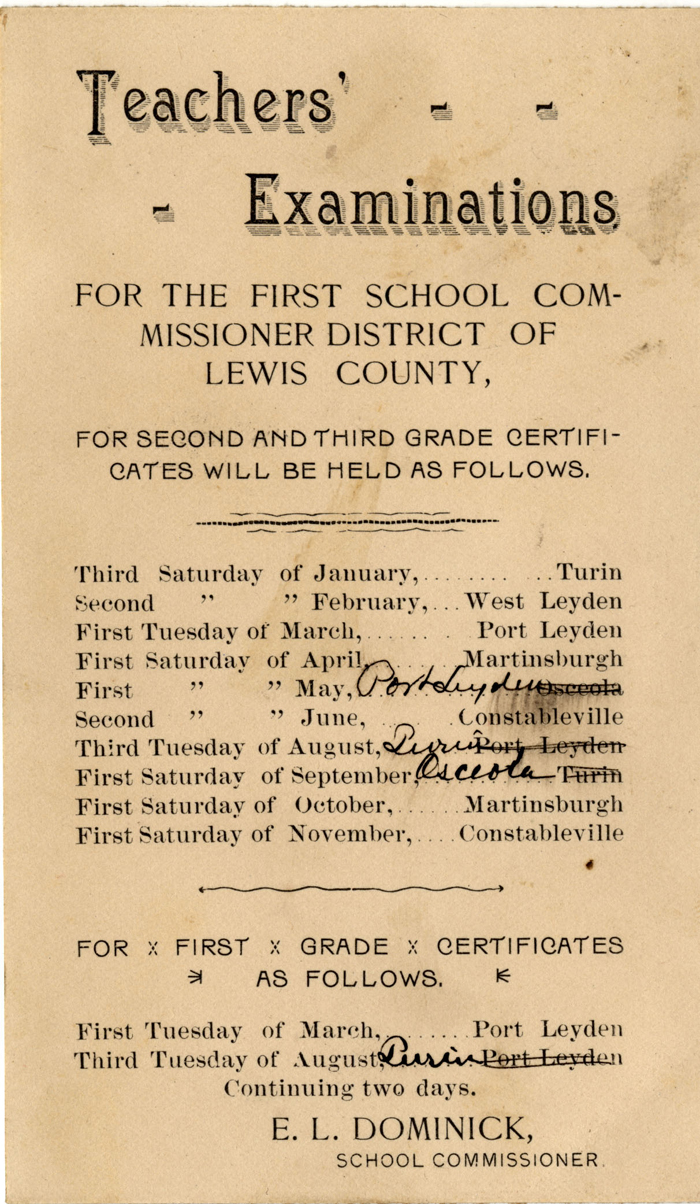 Teachers' - -
- Examinations
FOR THE FIRST SCHOOL COM-
MISSIONER DISTRICT OF
LEWIS COUNTY,
FOR SECOND AND THIRD GRADE CERTIFI-
CATES WILL BE HELD AS FOLLOWS.
Third Saturday of January,........ ...Turin
Second " " February,...West Leyden
First Tuesday of March,...... . Port Leyden
First Saturday of April,......Martinsburgh
First " " May, Port Leyden Osceola
Second " " June, .. .Constableville
Third Tuesday of August, Turin Port Leyden
First Saturday of September, Osceola Turin
First Saturday of October,......Martinsburgh
First Saturday of November,....Constableville
FOR x FIRST x GRADE x CERTIFICATES
AS FOLLOWS.
First Tuesday of March,.......Port Leyden
Third Tuesday of August, Turin Port Leyden
Continuing two days.
E. L. DOMINICK,
SCHOOL COMMISSIONER.